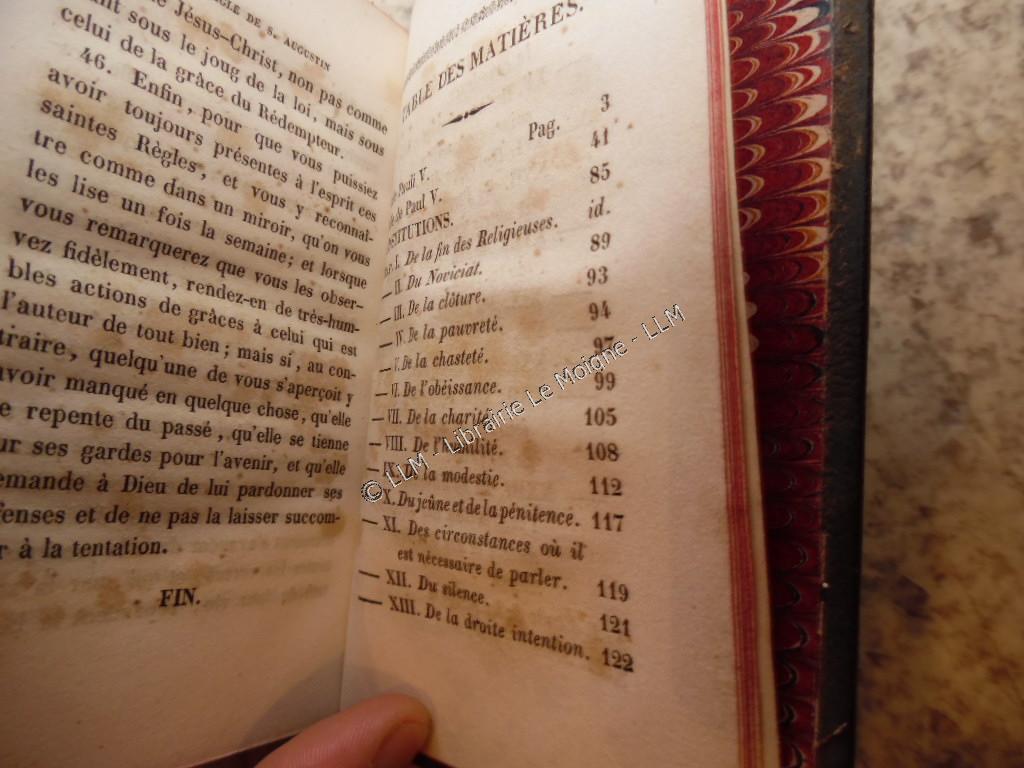 GLE DE S. AUGUSTIN
e Jésus-Christ, non pas comme
ant sous le joug de la loi, mais sous
celui de la grâce du Rédempteur.
46. Enfin, pour que vous puissiez
avoir toujours présentes à l'esprit ces
saintes Règles, et vous y reconnaî-
tre comme dans un miroir, qu'on vous
les lise un fois la semaine; et lorsque
vous remarquerez que vous les obser-
vez fidèlement, rendez-en de très-hum-
bles actions de grâces à celui qui est
l'auteur de tout bien; mais si, au con-
traire, quelqu'une de vous s'aperçoit y
avoir manqué en quelque chose, qu'elle
e repente du passé, qu'elle se tienne
ur ses gardes pour l'avenir, et qu'elle
emande à Dieu de lui pardonner ses
fenses et de ne pas la laisser succom-
r à la tentation.
FIN.
TABLE DES MATIÈRES.
Pag. 3
Pauli V. 41
de Paul V. 85
STITUTIONS. id.
I. De la fin des Religieuses. 89
— II. Du Noviciat. 93
— III. De la clôture. 94
— IV. De la pauvreté. 97
— V. De la chasteté. 99
— VI. De l'obéissance. 105
— VII. De la charité. 108
— VIII. De l'humilité. 112
— IX. De la modestie.
— X. Du jeûne et de la pénitence. 117
— XI. Des circonstances où il
est nécessaire de parler. 119
— XII. Du silence. 121
— XIII. De la droite intention. 122
© LLM - Librairie Le Moigne - LLM